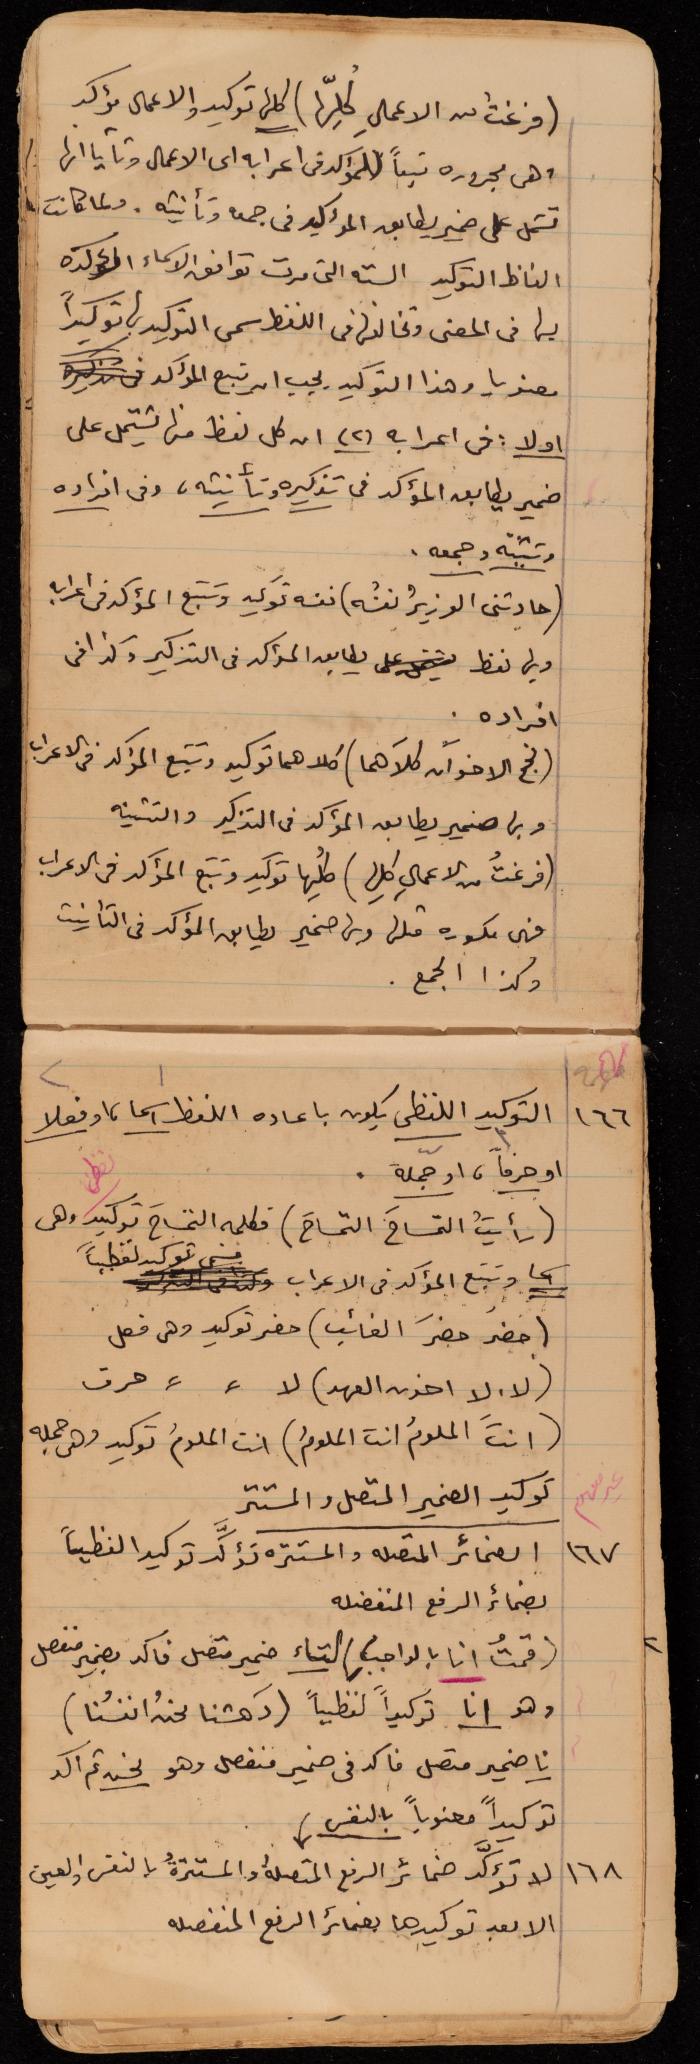 (فرغتُ من الاعمالِ كُلِّها) كلها توكيد والاعمال مؤكد
وهى مجروره تبعاً للمؤكد فى اعرابه اى الاعمال وثانيا انها
تشمل على ضمير يطابق المؤكد فى جمعه وتأنيثه . ولما كانت
الفاظ التوكيد السته التى مرت توافق الاسماء المؤكده
بها فى المعنى وتخالفها فى اللفظ سمى التوكيد بها توكيداً
معنويا وهذا التوكيد يجب ان يتبع المؤكد فى تذكيره
اولا : فى اعرابه (٢) ان كل لفظ منها يشتمل على
ضمير يطابق المؤكد فى تذكيره وتأنيثه ، وفى افراده
وتثنيته وجمعه .
(حادثنى الوزيرُ نفسُه) نفسه توكيد وتتبع المؤكد فى اعرابه
وبها لفظ يشتمل على يطابق المؤكد فى التذكير وكذا فى
افراده .
(نجح الاخوان كلاهما) كلاهما توكيد وتتبع المؤكد فى الاعراب
وبها ضمير يطابق المؤكد فى التذكير والتثنيه
(فرغتُ من الاعمالِ كلها) كلِّها توكيد وتتبع المؤكد فى الاعراب
فهى مكسوره مثلها وبها ضمير يطابق المؤكد فى التأنيث
وكذا الجمع .
١٦٦ التوكيد اللفظى يكون باعاده اللفظ اسما ، او فعلا
او حرفاً ، او جمله .
لفظى
(رأيتُ التمساحَ التمساحَ) فكلمه التمساحَ توكيد وهى
فهى توكيد لفظياً
اسما وتتبع المؤكد فى الاعراب
(حضرَ حضرَ الغائب) حضر توكيد وهى فعل
(لا ، لا اخون العهد) لا 〃 〃 حرف
(انتَ الملومُ انت الملومُ) انت الملومُ توكيد وهى جمله
توكيد الضمير المتصل والمستتر
غير مفهوم
١٦٧ الضمائر المتصله والمستتره تؤكَّد توكيدا لفظياً
بضمائر الرفع المنفصله
(قمتُ انا بالواجب) التاء ضمير متصل فاكد بضمير منفصل
وهو انا توكيداً لفظياً (دَهشنا نحنُ انفسُنا)
نا ضمير متصل فاكد فى ضمير منفصل وهو نحن ثم اكد
توكيداً معنوياً بالنفس
١٦٨ لا تؤكَّد ضمائر الرفع المتصلةُ والمستترةُ بالنفس والعين
الا بعد توكيدها بضمائر الرفع المنفصله